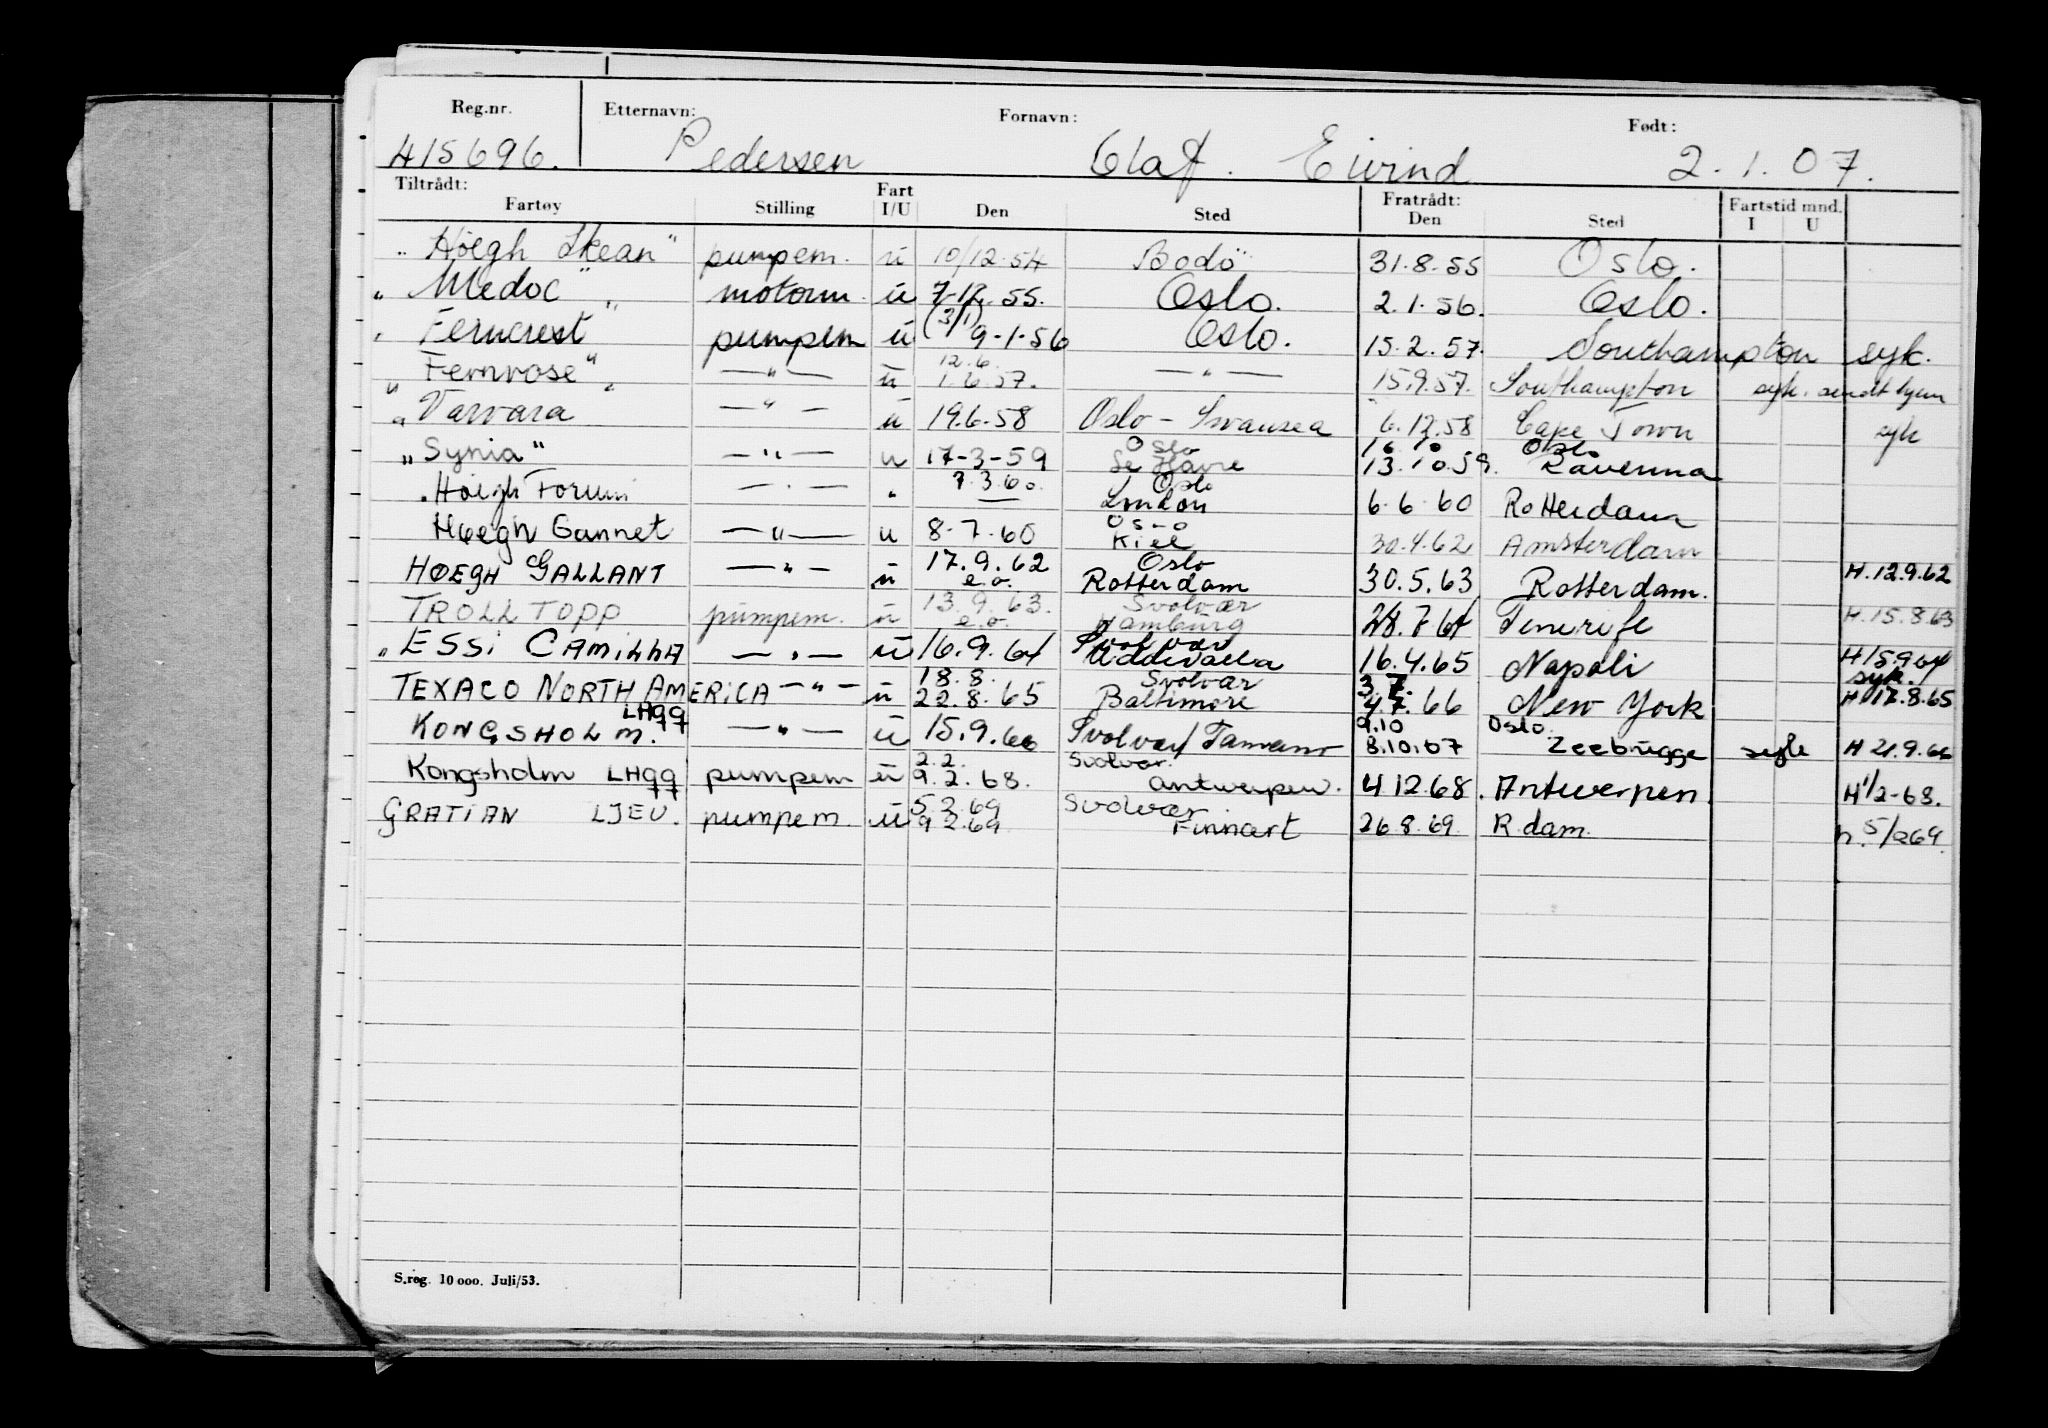 Reg.nr. Etternavn: Fornavn: Født:
415696. Pedersen Olaf. Eivind 2.1.07.
Tiltrådt: Fratrådt: Fartstid mnd.
Fartøy Stilling Fart I/U Den Sted Den Sted I U
„ Høegh Skean" pumpem. u 10/12.54 Bodö 31.8.55 Oslo.
„ Medoc " motorm. u 7-12.55. Oslo. 2.1.56. Oslo.
„ Ferncrest " pumpem u (3/1) 9-1-56 Oslo. 15.2.57. Southampton syk.
„ Fernrose " — " — u 12.6. 1.6.57. — " — 15.9.57. Southampton syk. sendt hjem
„ Varvara — " — u 19.6.58 Oslo - Swansea 6.12.58 Cape Town syk
„ Synia " — " — u 17-3-59 Oslo Le Havre 16.10 13.10.59. Oslo Ravenna
„ Høegh Forum — " — " 7.3.60. — Oslo London 6.6.60 Rotterdam
Høegh Gannet — " — u 8.7.60 Oslo Kiel 30.4.62 Amsterdam
HØEGH GALLANT — " — u 17.9.62 e.o. Oslo Rotterdam 30.5.63 Rotterdam. H.12.9.62
TROLLTOPP pumpem. u 13.9.63. e.o. Svolvær Hamburg 28.7.64 Tenerife H.15.8.63
„ ESSI CAMILLA — " — u 16.9.64 Svolvær Uddevalla 16.4.65 Napoli H15.9.64 syk.
TEXACO NORTH AMERICA — " — u 18.8. 22.8.65 Svolvær Baltimore 3.7. 4.7.66 New York H17.8.65
KONGSHOLM. LHQQ — " — u 15.9.66 Svolvær/ 9.10 8.10.67 Oslo Zeebrugge syk H 21.9.66
Kongsholm LHQQ pumpem u 2.2. 9.2.68. Svolvær. Antwerpen. 4 12.68. Antwerpen. H 1/2-68.
GRATIAN LJEU. pumpem u 5.2.69 9 2.69 Svolvær. Finnart 26.8.69. R dam. h. 5/2 69.
S.reg. 10 000. Juli/53.